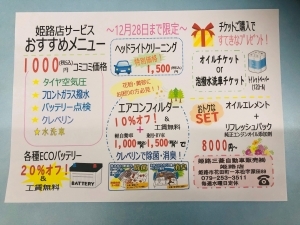 姫路店サービス
おすすめメニュー
1000円(税込)コミコミ価格
タイヤ空気圧
フロントガラス撥水
バッテリー点検
クレベリン
☆水洗車
各種ECOバッテリー
20%オフ!
&工賃無料
BATTERY
～12月28日まで限定～
ヘッドライトクリーニング
特別価格!
1,500円
エアコンフィルター
10%オフ!
&工賃無料
クレベリン除菌・消臭!
チケットご購入で
すてきなプレゼント!
オイルチケット
or
泡撥水洗車チケット
おトクなSET
オイルエレメント
+
リフレッシュパック
純正エンジンオイル添加剤
8000円～
姫路三菱自動車販売㈱
姫路店
079-253-3511
毎週水曜日定休